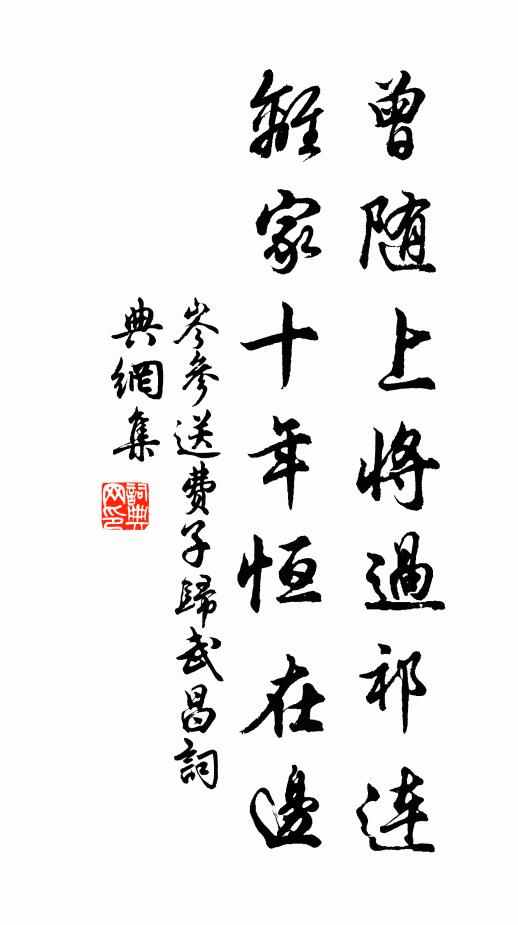 曾随上将過祁連
離家十年恒在邊
岑參送費子歸武昌詞
典網集
詞典网印